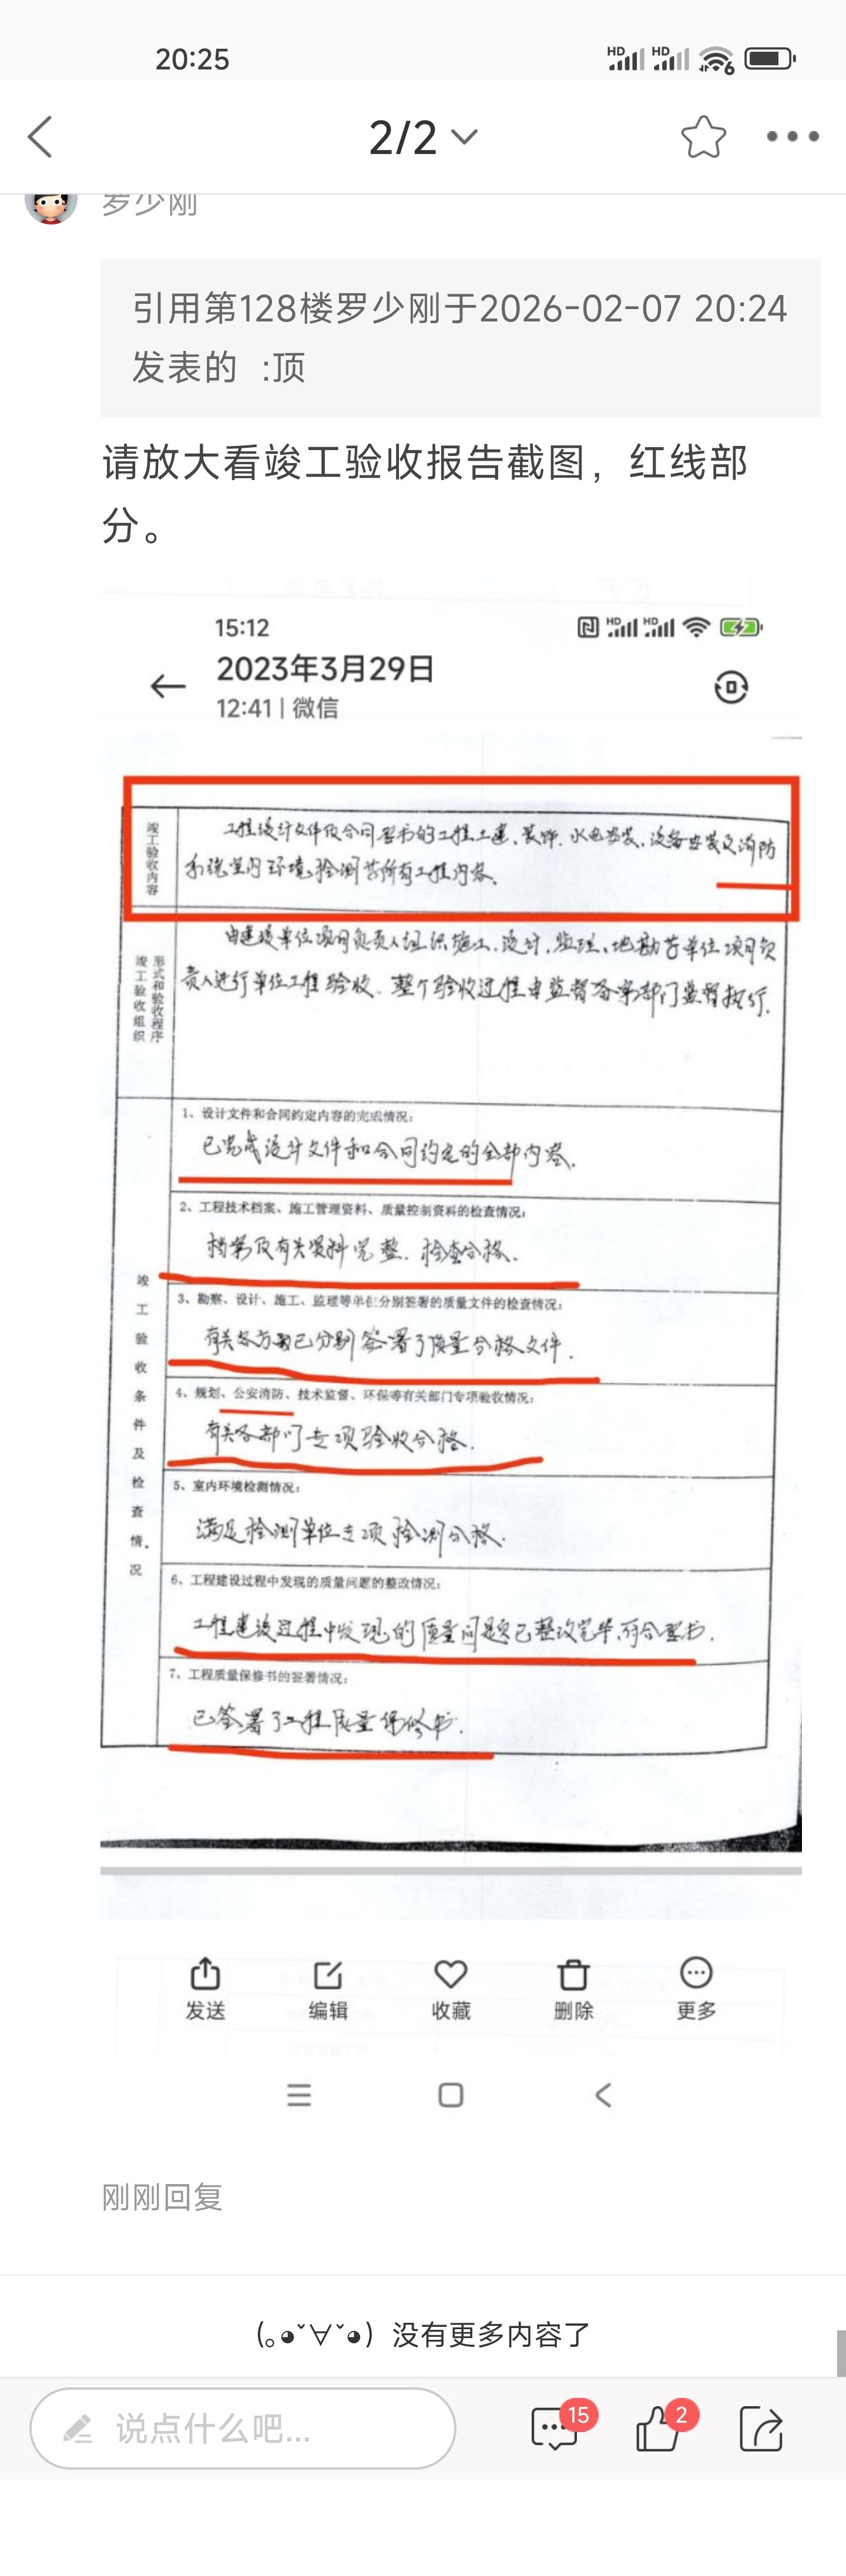 20:25
HD HD 6
2/2
罗少刚
引用第128楼罗少刚于2026-02-07 20:24
发表的 :顶
请放大看竣工验收报告截图，红线部
分。
15:12
HD HD
2023年3月29日
12:41 | 微信
竣工验收内容
工程设计文件及合同要求的工程土建、装饰、水电安装、设备安装及消防
系统室内环境检测等所有工程内容、
竣工验收组织
形式和验收程序
由建设单位项目负责人组织施工、设计、监理、地勘等单位项目负
责人进行单位工程验收、整个验收过程由监督备案部门监督执行.
竣工验收条件及检查情况
1、设计文件和合同约定内容的完成情况：
已完成设计文件和合同约定的全部内容.
2、工程技术档案、施工管理资料、质量控制资料的检查情况：
档案及有关资料完整、检查合格.
3、勘察、设计、施工、监理等单位分别签署的质量文件的检查情况：
有关各方已分别签署了质量合格文件.
4、规划、公安消防、技术监督、环保等有关部门专项验收情况：
有关各部门专项验收合格.
5、室内环境检测情况：
满足检测单位专项检测合格.
6、工程建设过程中发现的质量问题的整改情况：
工程建设过程中发现的质量问题已整改完毕,符合要求.
7、工程质量保修书的签署情况：
已签署了工程质量保修书.
发送 编辑 收藏 删除 更多
刚刚回复
(｡◕ˇ∀ˇ◕) 没有更多内容了
说点什么吧...
15
2